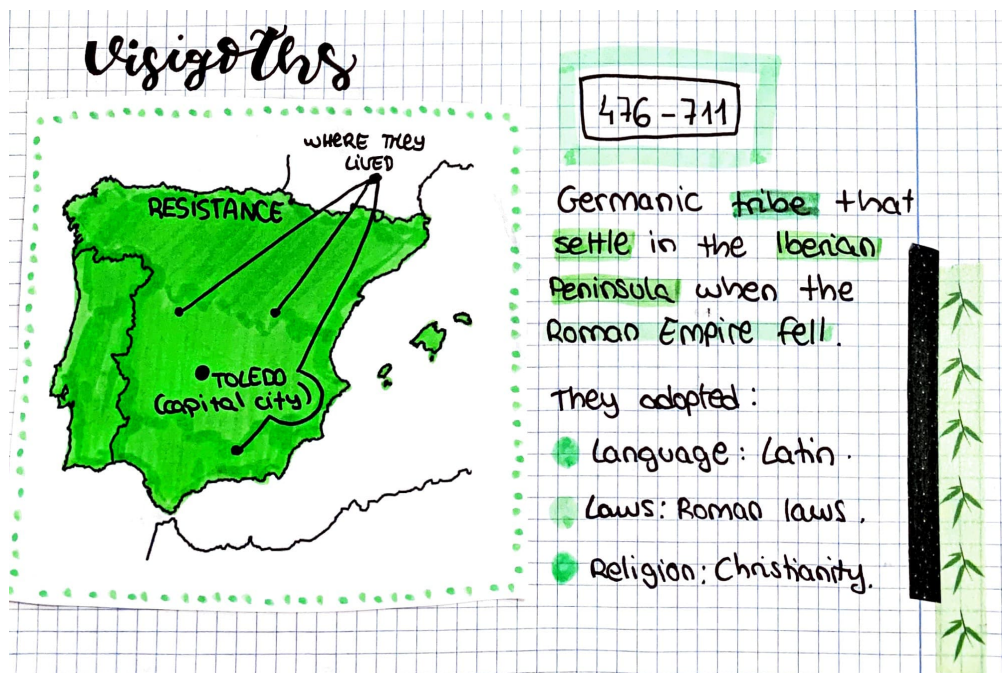 Visigoths
WHERE THEY
LIVED
RESISTANCE
TOLEDO
(capital city)
476-711
Germanic tribe that
settle in the Iberian
Peninsula when the
Roman Empire fell.
They adopted:
Language: Latin.
Laws: Roman laws.
Religion: Christianity.